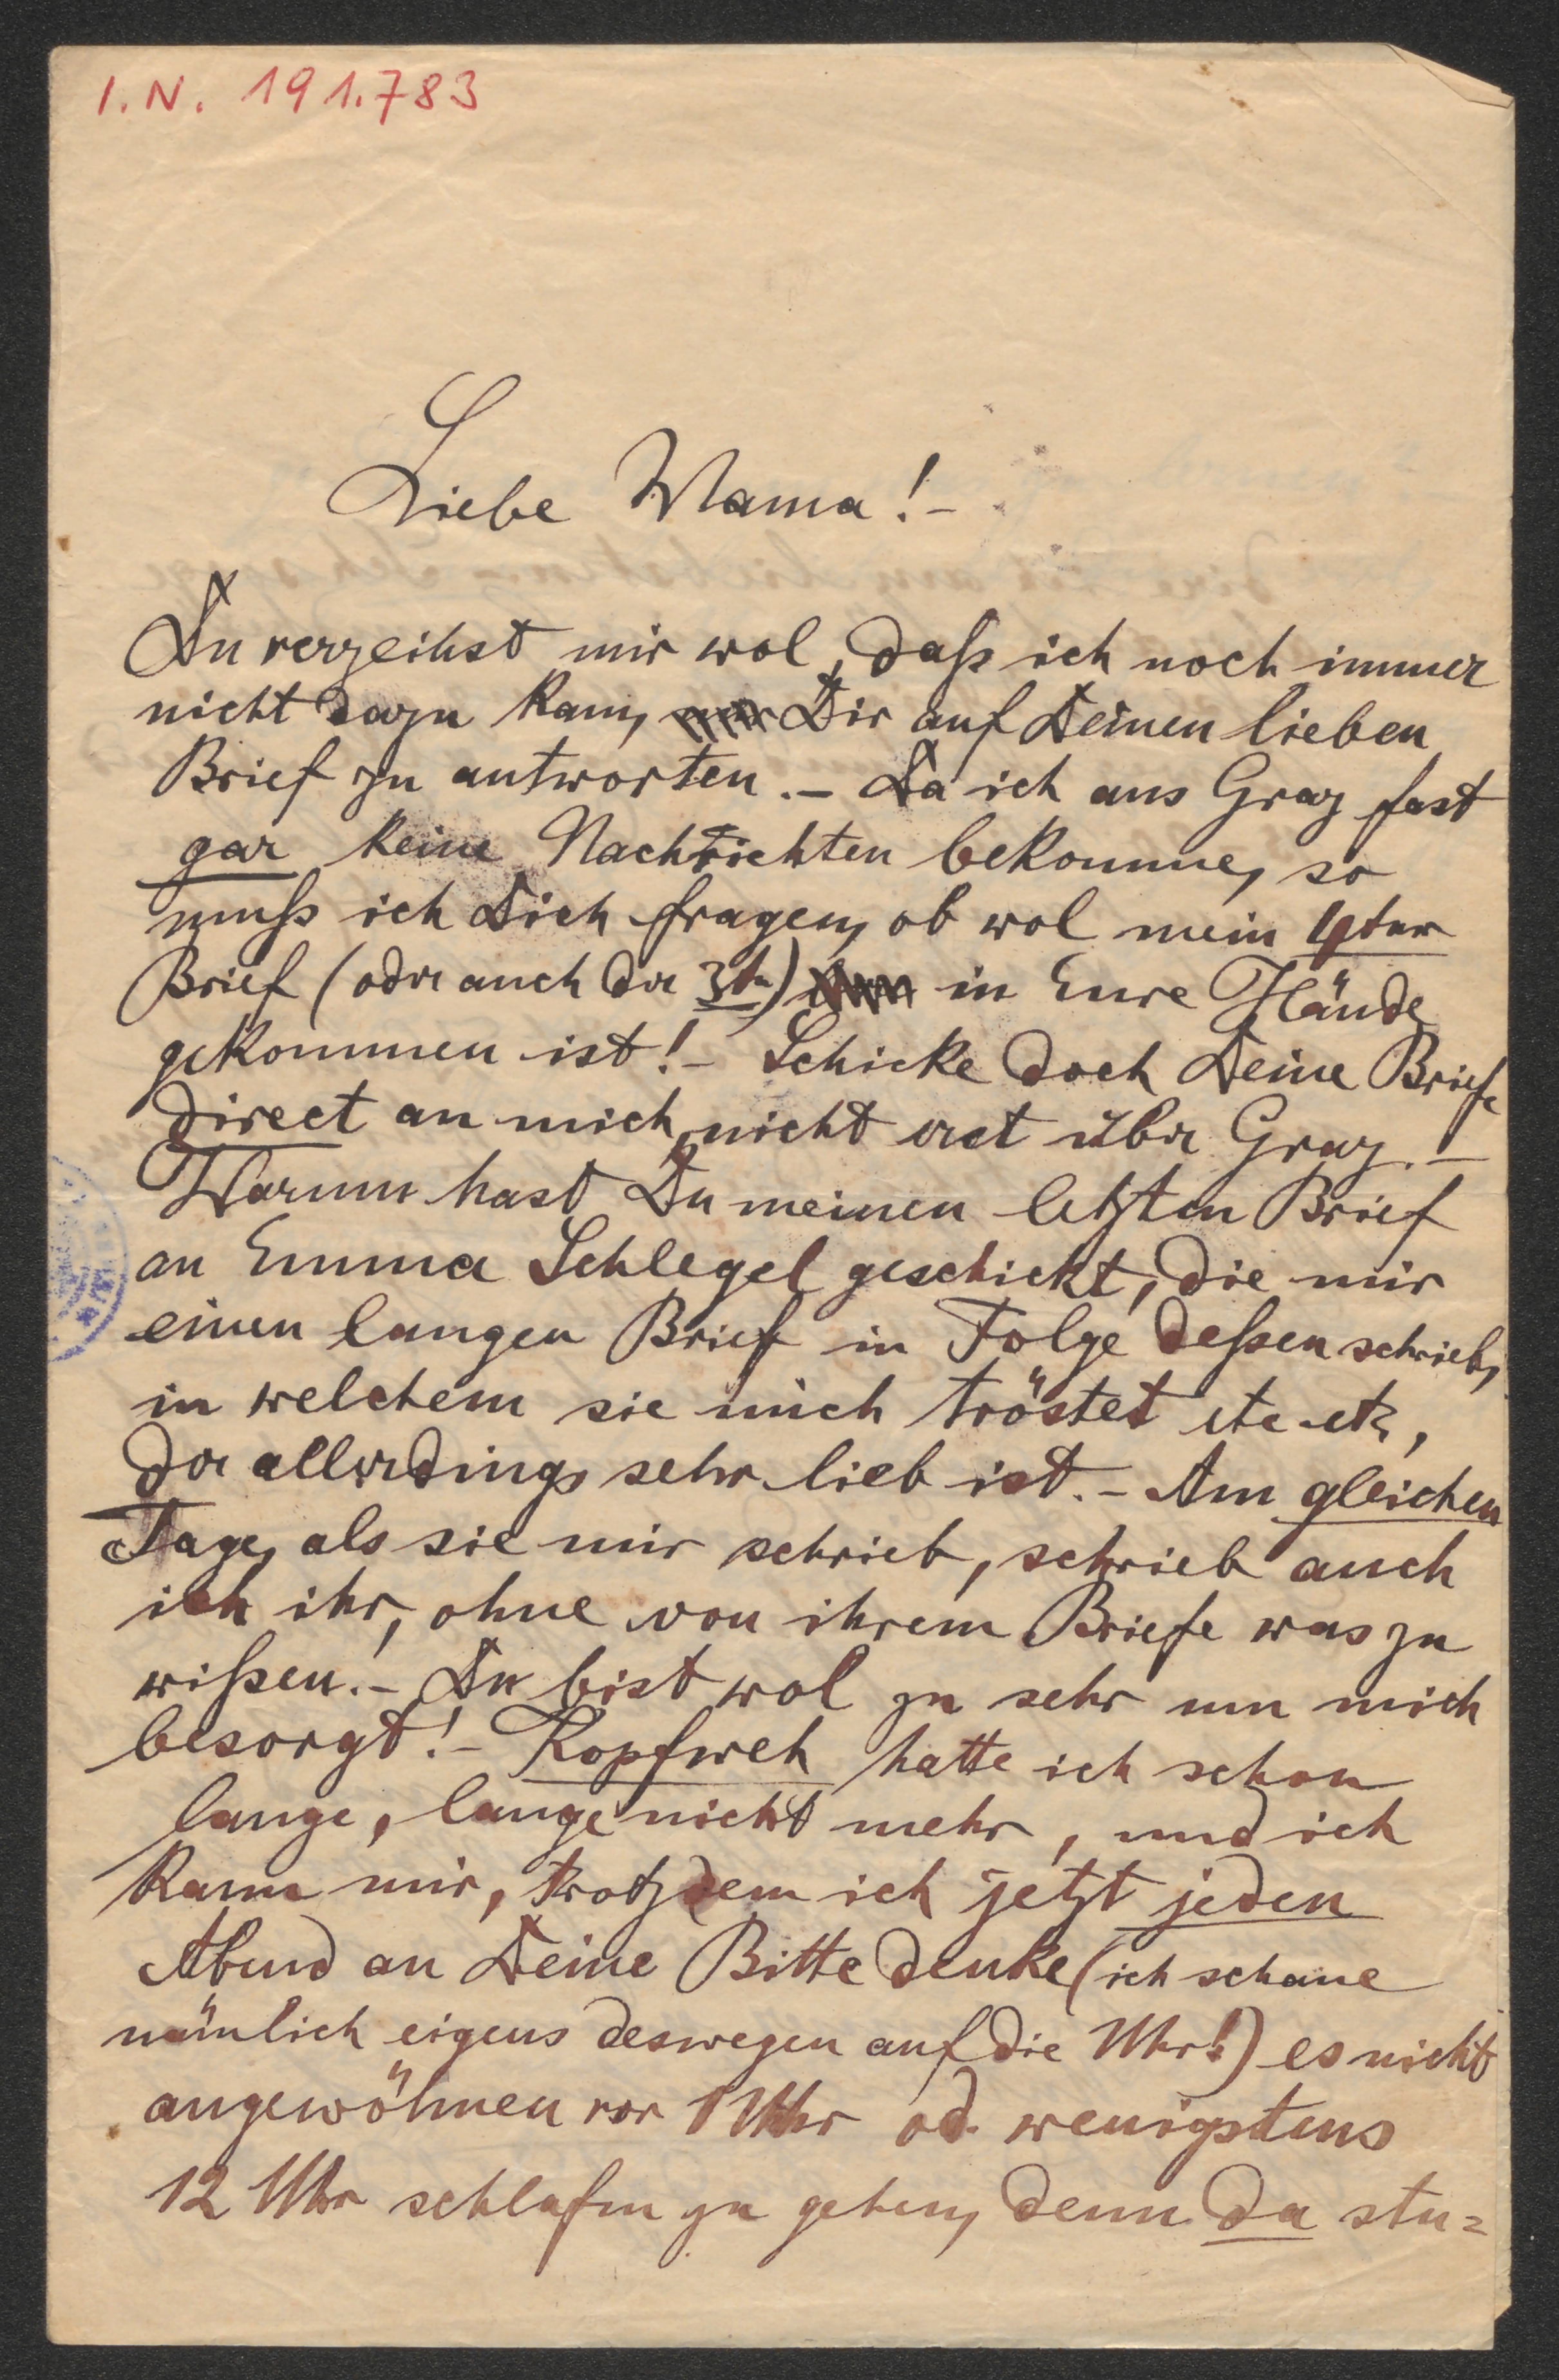 I. N. 191.783
Liebe Mama! –
Du verzeihst mir wol, daß ich noch immer
nicht dazu kam, Dir auf Deinen lieben
Brief zu antworten. – Da ich aus Graz fast
gar keine Nachrichten bekomme, so
muß ich Dich fragen, ob wol mein 4ter
Brief (oder auch der 3te) in Eure Hände
gekommen ist! – Schicke doch Deine Briefe
direct an mich, nicht erst über Graz. –
Warum hast Du meinen letzten Brief
an Emma Schlegel geschickt, die mir
einen langen Brief in Folge deßen schrieb,
in welchem sie mich tröstet etc etz,
der allerdings sehr lieb ist. – Am gleichen
Tage, als sie mir schrieb, schrieb auch
ich ihr, ohne von ihrem Briefe was zu
wißen. – Du bist wol zu sehr um mich
besorgt! – Kopfweh hatte ich schon
lange, lange nicht mehr, und ich
kann mir, trotzdem ich jetzt jeden
Abend an Deine Bitte denke (ich schaue
nämlich eigens deswegen auf die Uhr!) es nicht
angewöhnen vor 1 Uhr od. wenigstens
12 Uhr schlafen zu gehen, denn da stu=